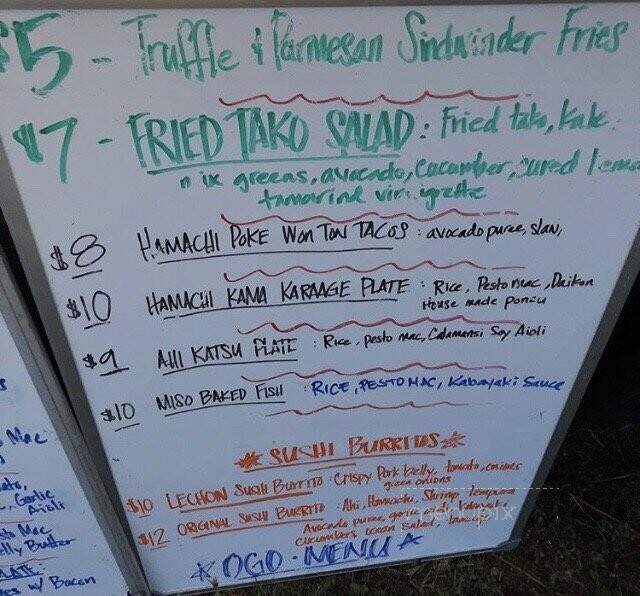 $5 - Truffle & Parmesan Sindwinder Fries
$7 - FRIED TAKO SALAD : Fried tako, Kale
greens, avocado, cucumber, cured
tamarind
$8 HAMACHI POKE WON TON TACOS : avocado puree, slaw,
$10 HAMACHI KAMA KARAAGE PLATE : Rice, Pesto mac, Daikon
House made ponzu
$9 AHI KATSU PLATE : Rice, pesto mac, Calamansi Soy Aioli
$10 MISO BAKED FISH : RICE, PESTO MAC, Kabayaki Sauce
SUSHI BURRITOS
$10 LECHON SUSHI BURRITO : Crispy Pork belly, tomato, onions
green onions
$12 ORIGINAL SUSHI BURRITO : Ahi, Hamachi, Shrimp tempura
Avocado puree, garlic aioli,
cucumbers ocean salad,
OGO - MENU
Mac
Garlic
Aioli
Mac
Butter
PLATE:
w/ Bacon